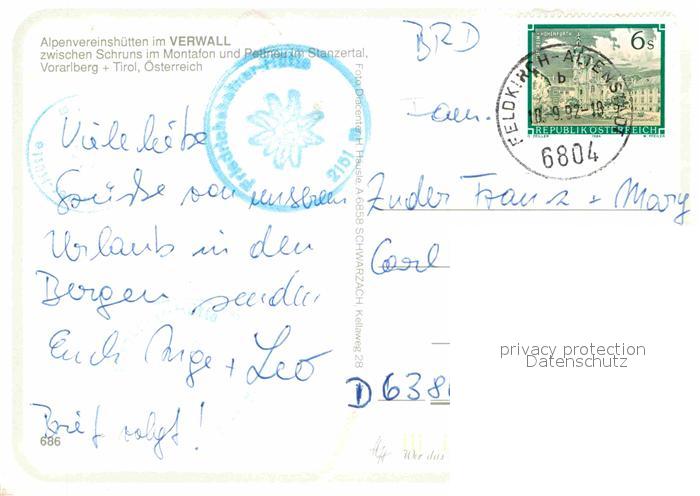 Alpenvereinshütten im VERWALL
zwischen Schruns im Montafon und Pettneu im Stanzertal,
Vorarlberg + Tirol, Österreich
Friedrichshafner-Hütte
2151 m
Viele liebe
Grüße von unserem
Urlaub in den
Bergen senden
Euch Inge + Leo
Brief folgt!
686
Foto Diacenter H. Häusle, A 6858 SCHWARZACH, Kellaweg 28
BRD
6 s
REPUBLIK ÖSTERREICH
FELDKIRCH-ALTENSTADT
b
6804
Fam.
Zuder Franz + Mary
Carl
D 638
privacy protection
Datenschutz